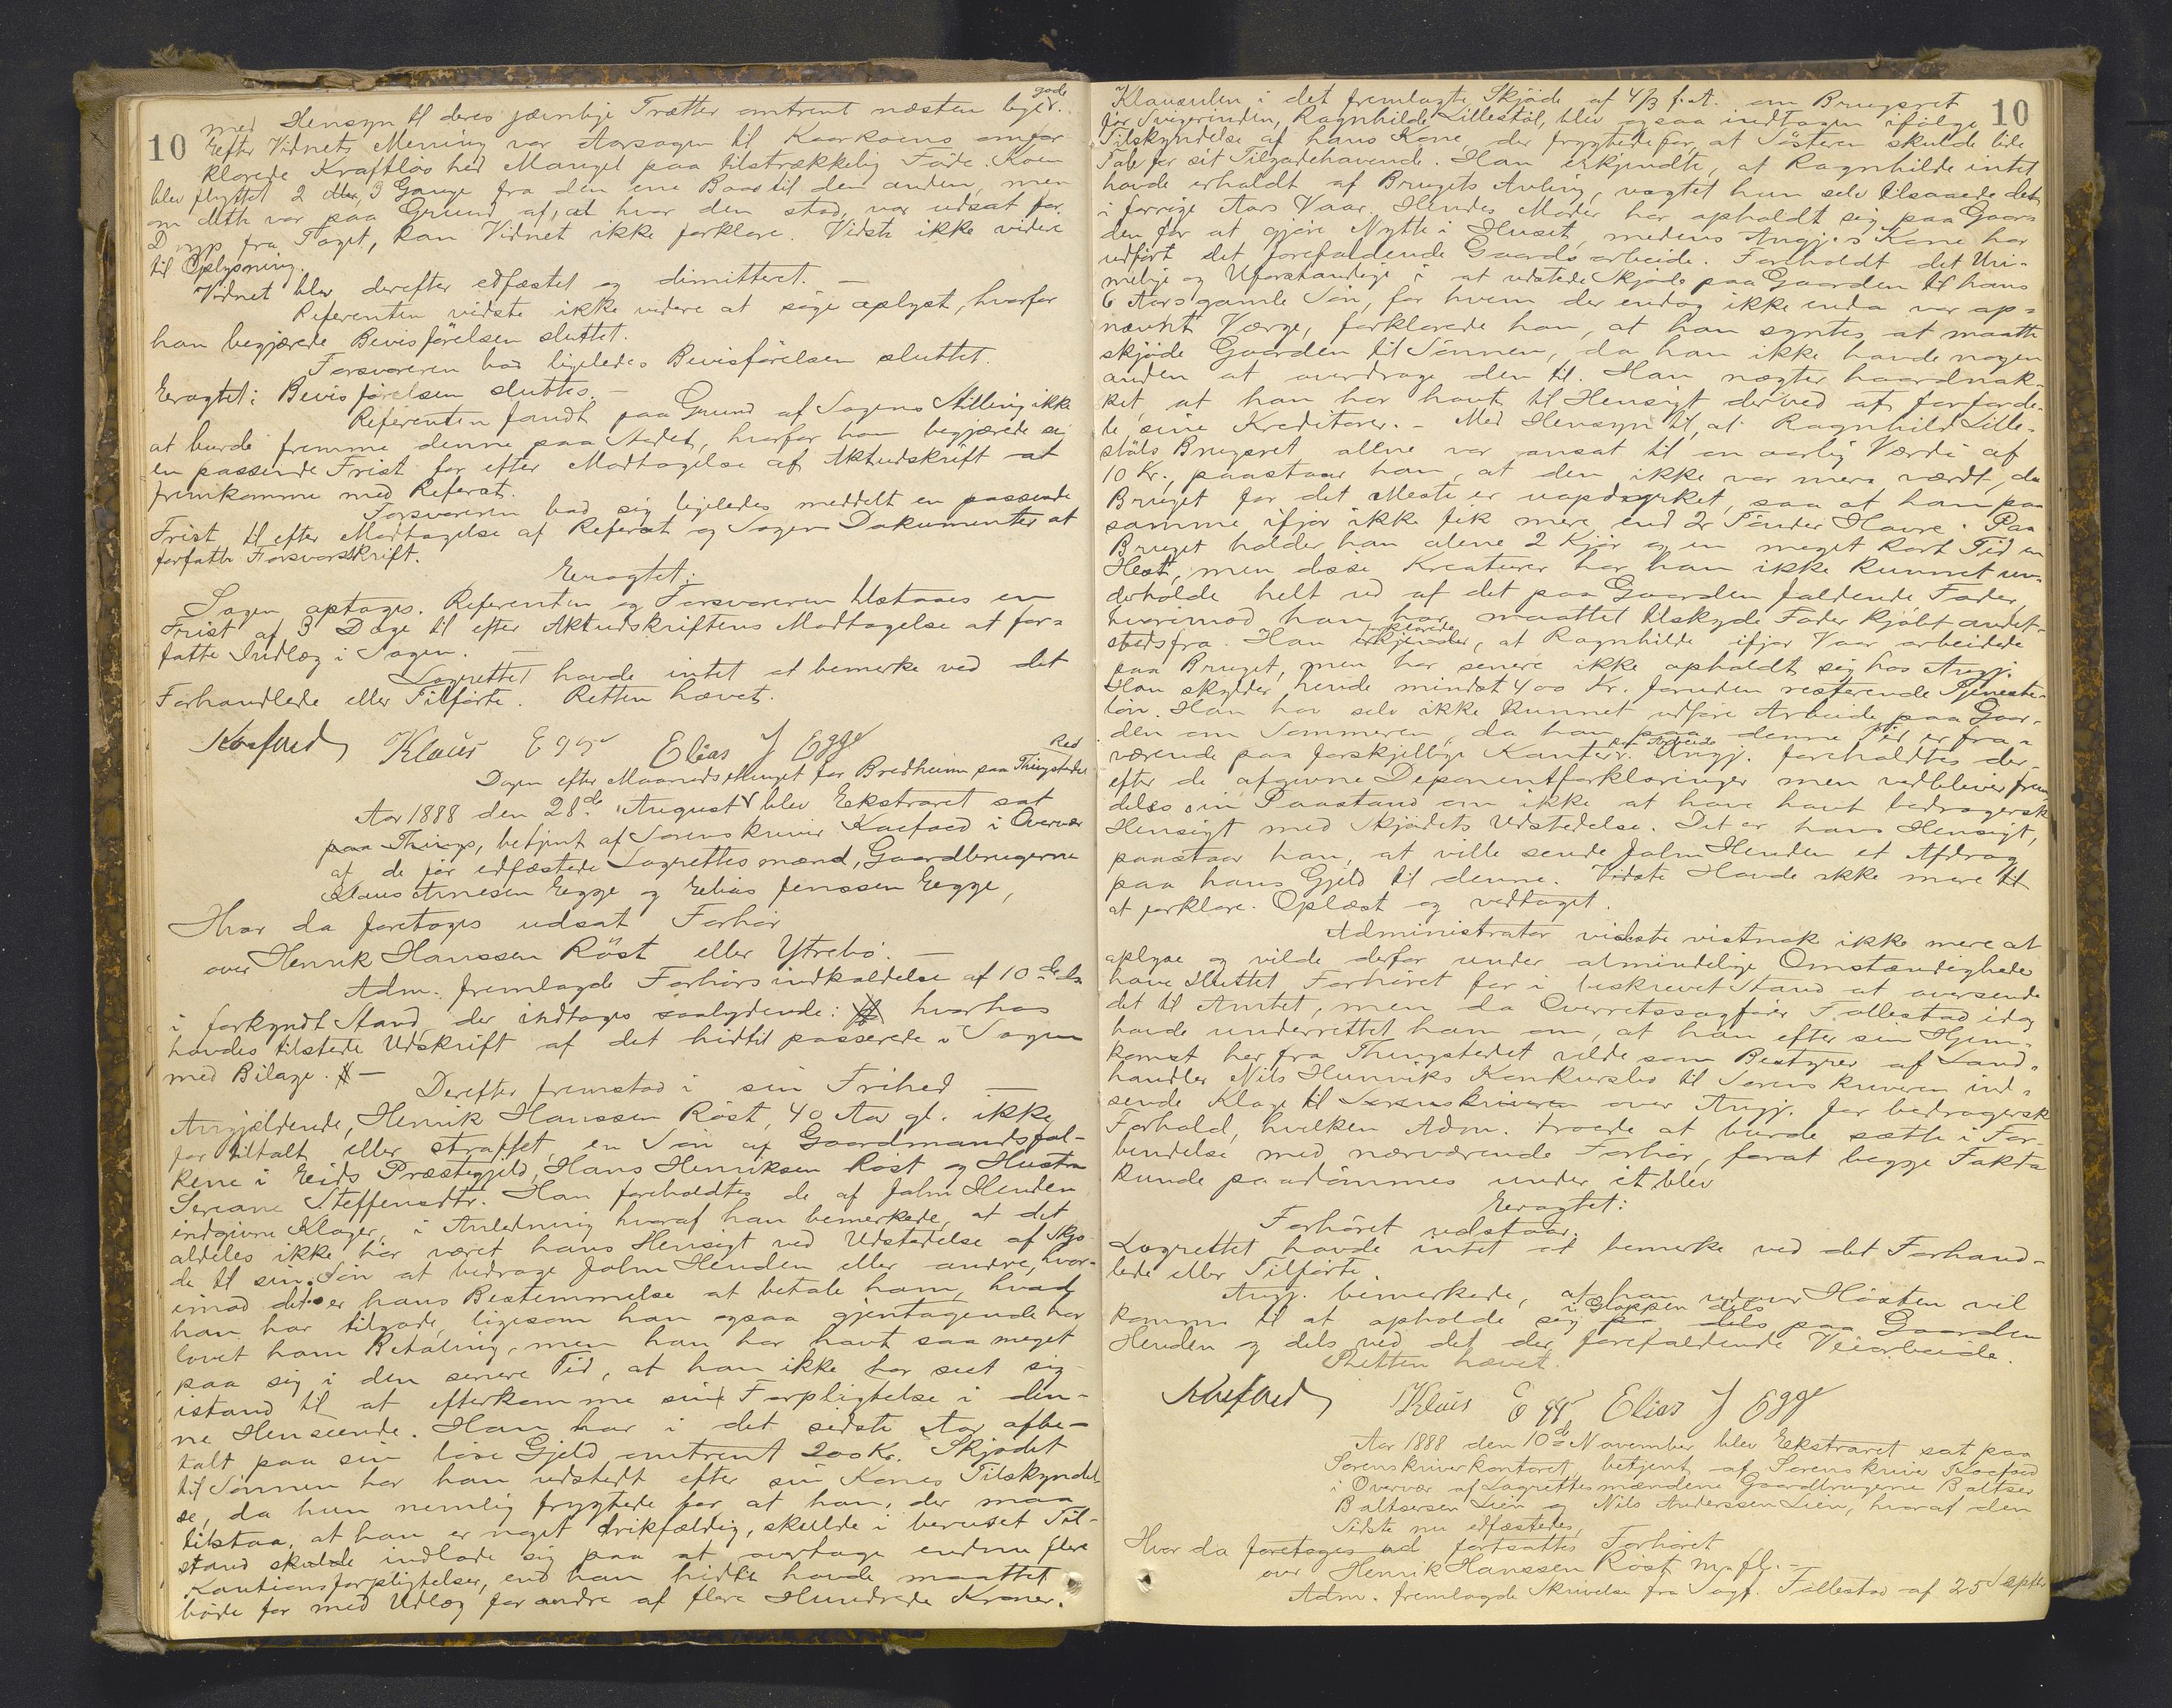 10
med Hensyn til deres jævnlige Trætter omtrent næsten lige gode.
Efter Vidnets Mening var Aarsagen til Kaarkoens omfor-
klarede Kraftløshed Mangel paa tilstrækkelig Føde. Koen
blev flyttet 2 eller 3 Gange fra den ene Baas til den anden, men
om dette var paa Grund af, at hvor den stod, var udsat for
Dryp fra Taget, kan Vidnet ikke forklare. Vidste ikke videre
til Oplysning.
Vidnet blev derefter edfæstet og dimitteret. —
Referenten vidste ikke videre at søge oplyst, hvorfor
han begjærede Bevisførelsen sluttet.
Forsvareren bad ligeledes Bevisførelsen sluttet.
Eragtet: Bevisførelsen sluttes. —
Referenten fandt paa Grund af Sagens Stilling ikke
at burde fremme denne paa Stedet, hvorfor han begjærede sig
en passende Frist for efter Modtagelse af Aktudskrift at
fremkomme med Referat.
Forsvareren bad sig ligeledes meddelt en passende
Frist til efter Modtagelse af Referat og Sagens Dokumenter at
forfatte Forsvarsskrift.
Eragtet:
Sagen optages. Referenten og Forsvareren tilstaaes en
Frist af 3 Dage til efter Aktudskriftens Modtagelse at for-
fatte Indlæg i Sagen. —
Lagrettet havde intet at bemerke ved det
Forhandlede eller Tilførte. Retten hævet.
Koefoed Klaus Egge Elias J Egge
Dagen efter Maanedsthinget for Bredheim paa Thingstedet Red
Aar 1888 den 28de August blev Ekstraret sat
paa Things, betjent af Sorenskriver Koefoed i Overvær
af de før edfæstede Lagrettesmænd, Gaardbrugerne
Klaus Arnesen Egge og Elias Jenssen Egge,
Hvor da foretages udsat Forhør
over Henrik Hanssen Röst eller Ytrebö. —
Adm. fremlagde Forhørsindkaldelse af 10de ds.
i forkyndt Stand, der indtages saalydende: hvorhos
havdes tilstede Udskrift af det hidtil passerede i Sagen
med Bilage. —
Derefter fremstod i sin Frihed —
Angjældende, Henrik Hanssen Röst, 40 Aar gl. ikke
før tiltalt eller straffet, en Søn af Gaardmandsfol-
kene i Eids Præstegjeld, Hans Henriksen Röst og Hustru
Seriane Steffensdtr. Han foreholdtes de af John Henden
indgivne Klager, i Anledning hvoraf han bemerkede, at det
aldeles ikke har været hans Hensigt ved Udstedelse af Skjø-
de til sin Søn at bedrage John Henden eller andre, hvor-
imod det er hans Bestemmelse at betale ham, hvad
han har tilgode, ligesom han ogsaa gjentagende har
lovet ham Betaling, men han har havt saa meget
paa sig i den senere Tid, at han ikke har seet sig
istand til at efterkomme sin Forpligtelse i den-
ne Henseende. Han har i det sidste Aar afbe-
talt paa sin løse Gjeld omtrent 200 Kr. Skjødet
til Sønnen har han udstedt efter sin Kones Tilskyndel-
se, da hun nemlig frygtede for at han, der maa
tilstaa, at han er noget drikfældig, skulde i beruset Til-
stand skulde indlade sig paa at overtage endnu flere
Kautionsforpligtelser, end han hidtil havde maattet
bøde for med Udlæg for andre af flere Hundrede Kroner.
10
Klausulen i det fremlagte Skjøde af 4/3 f.A. om Brugsret
for Svigerinden, Ragnhilde Lillestöl, blev ogsaa indtagen ifølge
Tilskyndelse af hans Kone, der frygtede for, at Søsteren skulde lide
Tab for sit Tilgodehavende. Han erkjendte, at Ragnhilde intet
havde erholdt af Brugets Avling, uagtet hun selv tilsaaede det
i forrige Aars Vaar. Hendes Moder har opholdt sig paa Gaar-
den for at gjøre Nytte i Huset, medens Angj.s Kone har
udført det forefaldende Gaardsarbeide. Foreholdt det Uri-
melige og Uforstandige i at udstede Skjøde paa Gaarden til hans
6 Aars gamle Søn, for hvem der endog ikke enda var op-
nævnt Værge, forklarede han, at han syntes at maatte
skjøde Gaarden til Sønnen, da han ikke havde nogen
anden at overdrage den til. Han nægter haardnak-
ket, at han har havt til Hensigt derved at forfordel-
le sine Kreditorer. — Med Hensyn til, at Ragnhild Lille-
stöls Brugsret allene var ansat til en aarlig Værdi af
10 Kr., paastaar han, at den ikke var mere værdt, da
Bruget for det Meste er uopdyrket, saa at han paa
samme ifjor ikke fik mere end 2 Tönder Havre. Paa
Bruget holder han alene 2 Kjör og en meget kort Tid en
Hest, men disse Kreaturer har han ikke kunnet un-
derholde helt ud af det paa Gaarden faldende Foder,
hvorimod han har maattet tilskyde Foder kjøbt andet-
stedsfra. Han erkjender forklarede, at Ragnhilde ifjor Vaar arbeidede
paa Bruget, men har senere ikke opholdt sig hos Angj.
Han skylder hende mindst 400 Kr. foruden resterende Tjeneste-
løn. Han har selv ikke kunnet udføre Arbeide paa Gaar-
den om Sommeren, da han paa denne Tid er fra-
værende paa forskjellige Kanter paa Arbeide. Angj. foreholdtes der-
efter de afgivne Deponentforklaringer men vedbliver frem-
deles sin Paastand om ikke at have havt bedragersk
Hensigt med Skjødets Udstedelse. Det er hans Hensigt,
paastaar han, at ville sende John Henden et Afdrag
paa hans Gjeld til denne. Vidste Havde ikke mere til
at forklare. Oplæst og vedtaget.
Administrator vidste vistnok ikke mere at
oplyse og vilde derfor under almindelige Omstændigheder
have sluttet Forhøret for i beskrevet Stand at oversende
det til Amtet, men da Overretssagfører Tallestad idag
havde underrettet ham om, at han efter sin Hjem-
komst her fra Thingstedet vilde som Bestyrer af Land-
handler Nils Hunviks Konkursbo til Sorenskriveren ind-
sende Klage til Sorenskriveren over Angj. for bedragersk
Forhold, hvilken Adm. troede at burde sætte i For-
bindelse med nærværende Forhør, forat begge Fakta
kunde paadømmes under ét, blev
Eragtet:
Forhøret udstaar.
Lagrettet havde intet at bemerke ved det Forhand-
lede eller Tilførte.
Angj. bemerkede, at han udover Høsten vil
komme til at opholde sig i Gloppen dels paa Gaarden
Henden og dels ved det der forefaldende Veiarbeide.
Retten hævet.
Koefoed Klaus Egge Elias J Egge
Aar 1888 den 10de November blev Ekstraret sat paa
Sorenskriverkontoret, betjent af Sorenskriver Koefoed
i Overvær af Lagrettesmændene Gaardbrugerne Baltser
Baltsersen Lien og Nils Anderssen Lien, hvoraf den
Sidste nu edfæstedes,
Hvor da foretages ud fortsattes Forhøret
over Henrik Hanssen Röst m. fl. —
Adm. fremlagde Skrivelse fra Sagf. Tallestad af 25 Septbr